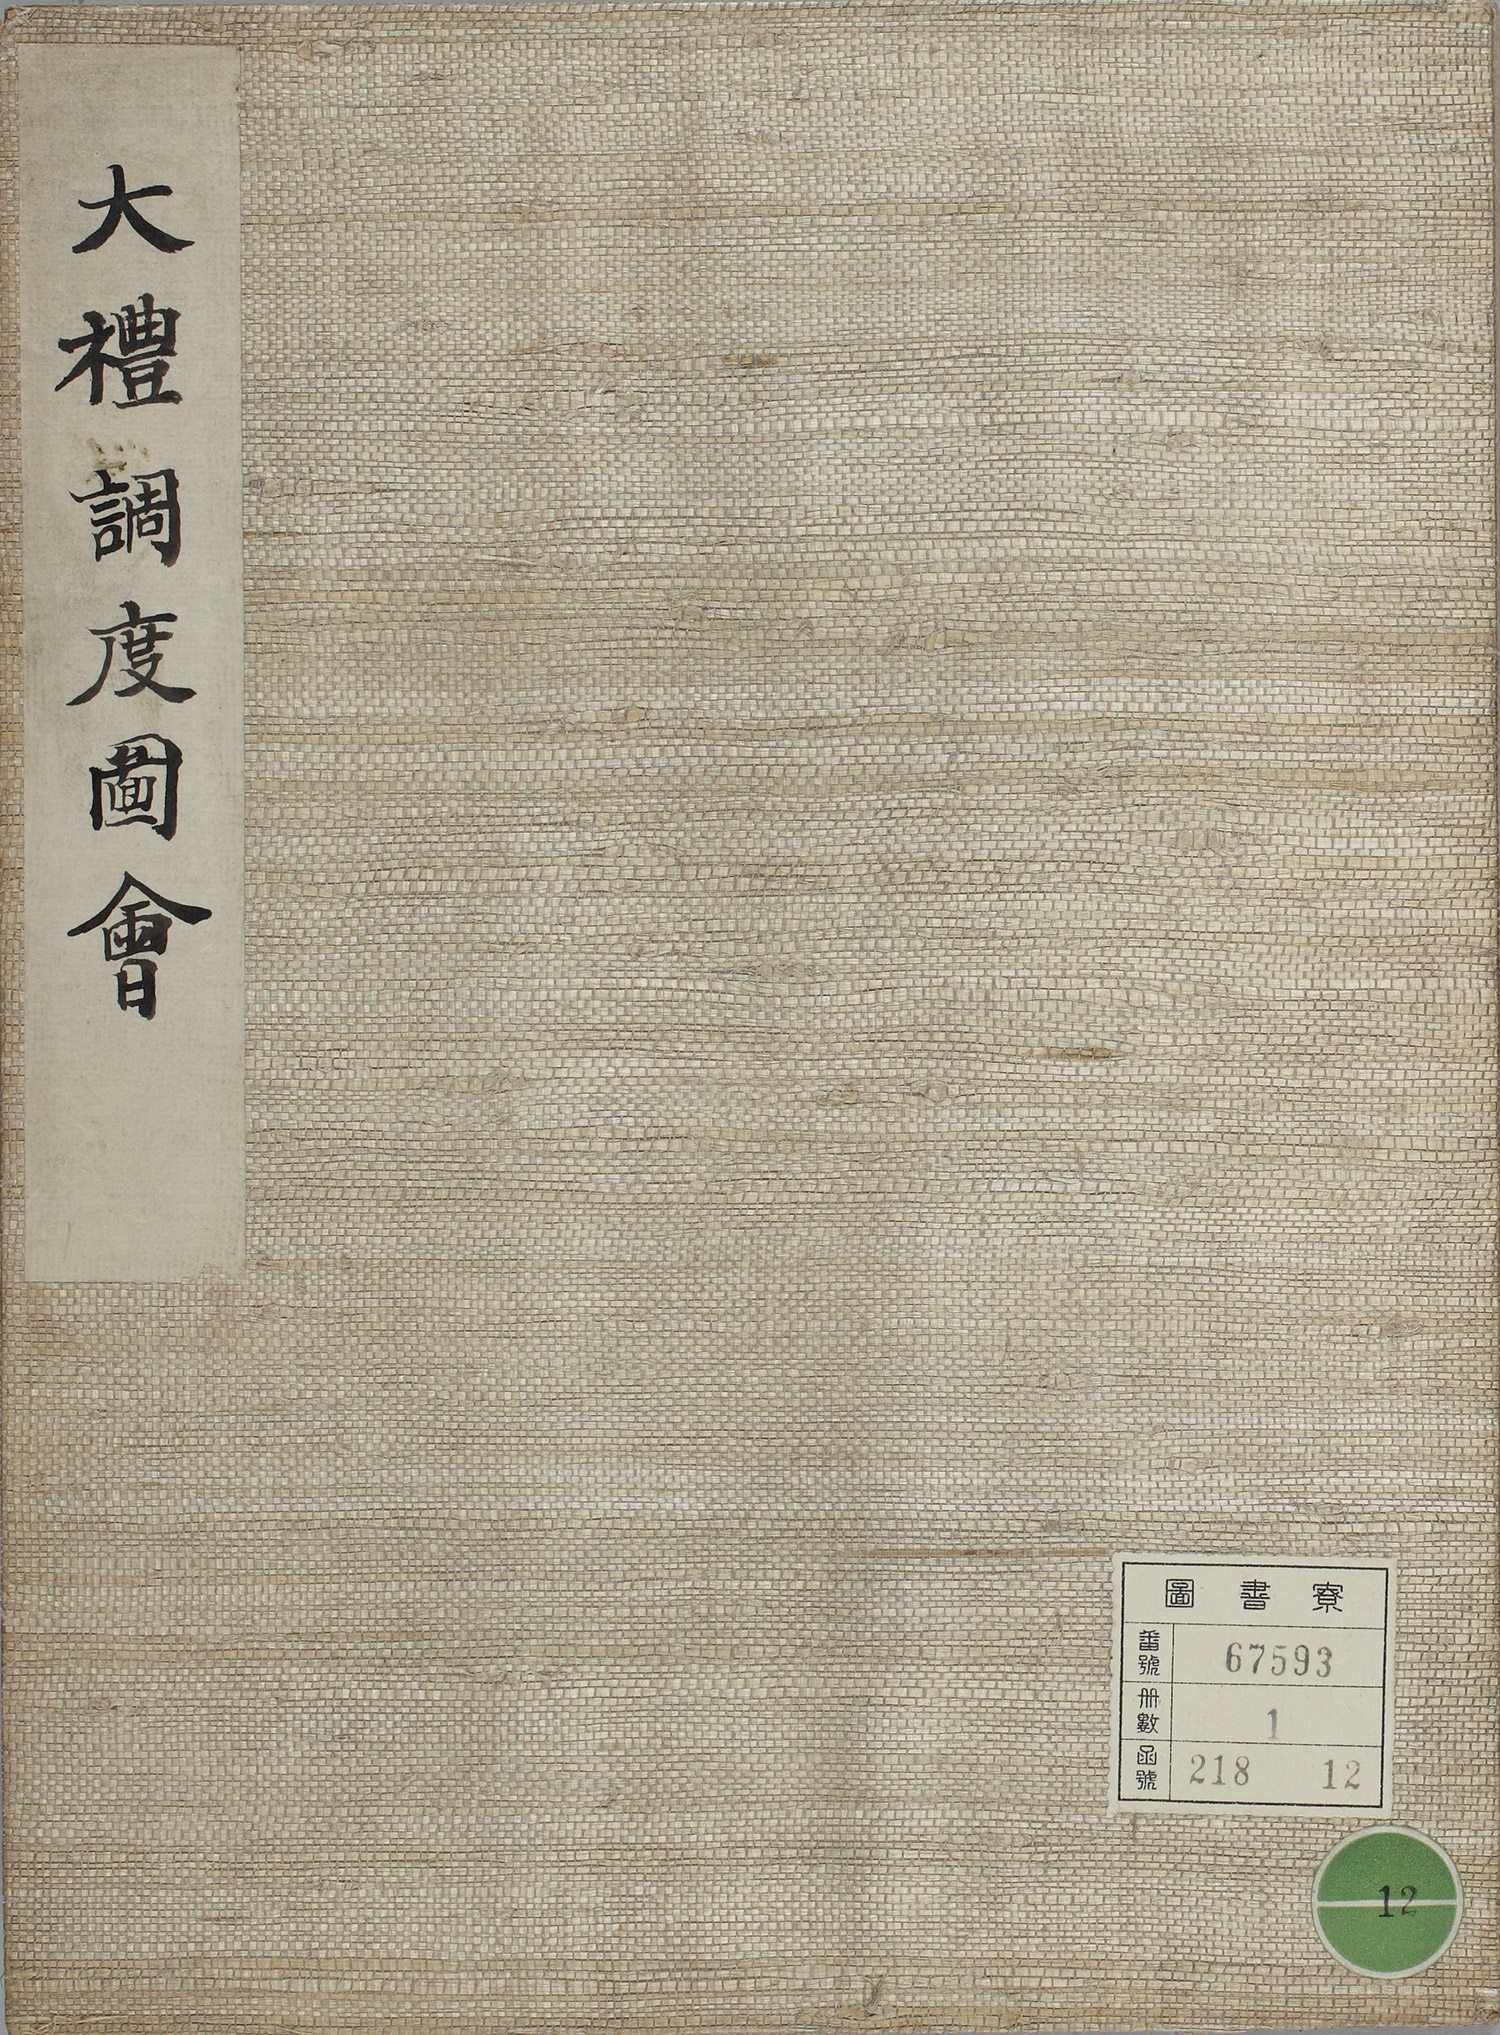 大禮調度圖會
圖書寮
番號 67593
册數 1
函號 218 12
12